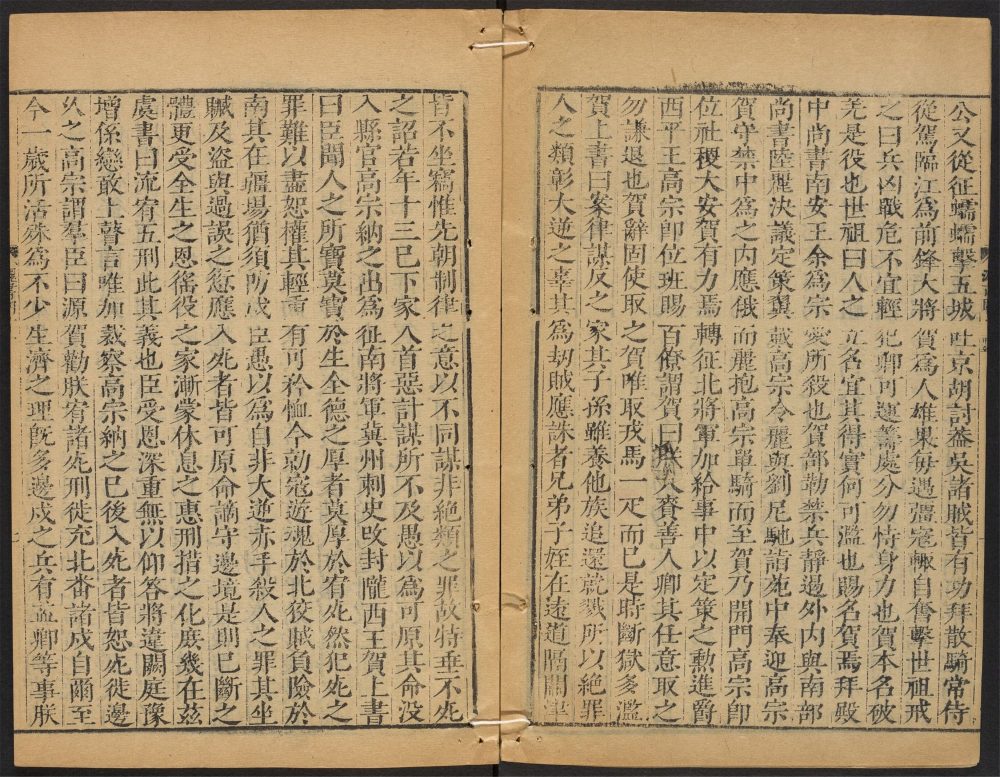 公又從征蠕蠕擊五城吐京胡討蓋吳諸賊皆有功拜散騎常侍
從駕臨江為前鋒大將賀為人雄果每遇彊寇輒自奮擊世祖戒
之曰兵凶戰危不宜輕犯卿可運籌處分勿恃身力也賀本名破
羌是役也世祖曰人之立名宜其得實何可濫也賜名賀焉拜殿
中尚書南安王余為宗愛所殺也賀部勒禁兵靜遏外內與南部
尚書陸麗決議定策翼戴高宗令麗與劉尼馳詣苑中奉迎高宗
賀守禁中為之內應俄而麗抱高宗單騎而至賀乃開門高宗即
位社稷大安賀有力焉轉征北將軍加給事中以定策之勳進爵
西平王高宗即位班賜百僚謂賀曰朕大賚善人卿其任意取之
勿謙退也賀辭固使取之賀唯取戎馬一疋而已是時斷獄多濫
賀上書曰案律謀反之家其子孫雖養他族追還就戮所以絕罪
人之類彰大逆之辜其為劫賊應誅者兄弟子姪在遠道隔關津
皆不坐竊惟先朝制律之意以不同謀非絕類之罪故特垂不死
之詔若年十三已下家人首惡計謀所不及愚以為可原其命沒
入縣官高宗納之出為征南將軍冀州刺史改封隴西王賀上書
曰臣聞人之所寶莫寶於生全德之厚者莫厚於宥死然犯死之
罪難以盡恕權其輕重有可矜恤今勍寇遊魂於北狡賊負險於
南其在疆場猶須防戍臣愚以為自非大逆赤手殺人之罪其坐
贓及盜與過誤之愆應入死者皆可原命謫守邊境是則已斷之
體更受全生之恩徭役之家漸蒙休息之惠刑措之化庶幾在茲
虞書曰流宥五刑此其義也臣受恩深重無以仰答將違闕庭豫
增係戀敢上瞽言唯加裁察高宗納之已後入死者皆恕死徙邊
久之高宗謂羣臣曰源賀勸朕宥諸死刑徙充北番諸戍自爾至
今一歲所活殊為不少生濟之理既多邊戍之兵有益卿等事朕